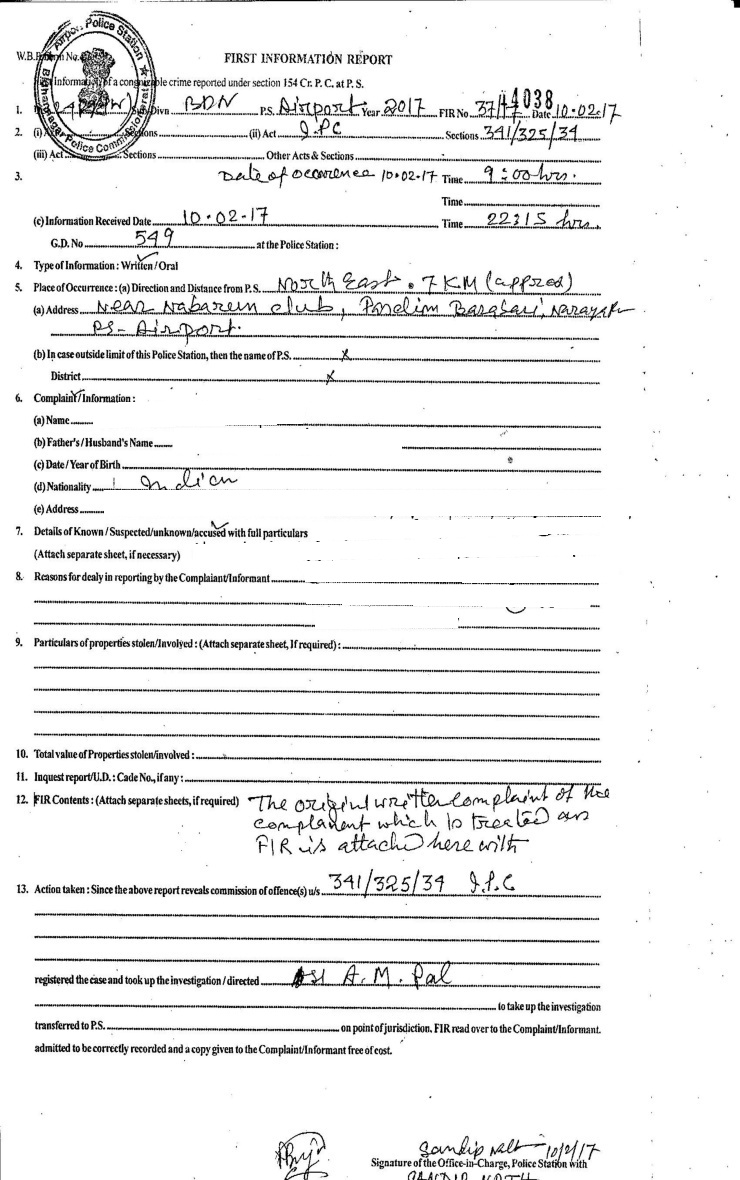 Airport Police Station
Bidhannagar Police Commissionerate
W.B. Form No.
FIRST INFORMATION REPORT
Information of a congnizable crime reported under section 154 Cr. P. C. at P. S.
1. Divn BDN P.S. Airport Year 2017 FIR No 4038 Date 10.02.17
2. (i) Sections (ii) Act I.P.C Sections 341/325/34
(iii) Act Sections Other Acts & Sections
3. Date of occurence 10.02.17 Time 9:00 hrs.
Time
(c) Information Received Date 10.02-17 Time 22:15 hrs.
G.D. No 549 at the Police Station :
4. Type of Information : Written / Oral
5. Place of Occurrence : (a) Direction and Distance from P.S. North East. 7 KM (approx)
(a) Address Near club,
PS - Airport.
(b) In case outside limit of this Police Station, then the name of P.S. x
District x
6. Complaint / Information :
(a) Name
(b) Father's / Husband's Name
(c) Date / Year of Birth
(d) Nationality Indian
(e) Address
7. Details of Known / Suspected/unknown/accused with full particulars
(Attach separate sheet, if necessary)
8. Reasons for dealy in reporting by the Complaiant/Informant
9. Particulars of properties stolen/Involved : (Attach separate sheet, If required) :
10. Total value of Properties stolen/involved :
11. Inquest report/U.D. : Cade No., if any :
12. FIR Contents : (Attach separate sheets, if required) The original written complaint of the
which is treated as
FIR is attached here with
13. Action taken : Since the above report reveals commission of offence(s) u/s 341/325/34 I.P.C
registered the case and took up the investigation / directed A. M. Pal
to take up the investigation
transferred to P.S. on point of jurisdiction. FIR read over to the Complaint/Informant.
admitted to be correctly recorded and a copy given to the Complaint/Informant free of cost.
Sandip 10/2/17
Signature of the Office-in-Charge, Police Station with